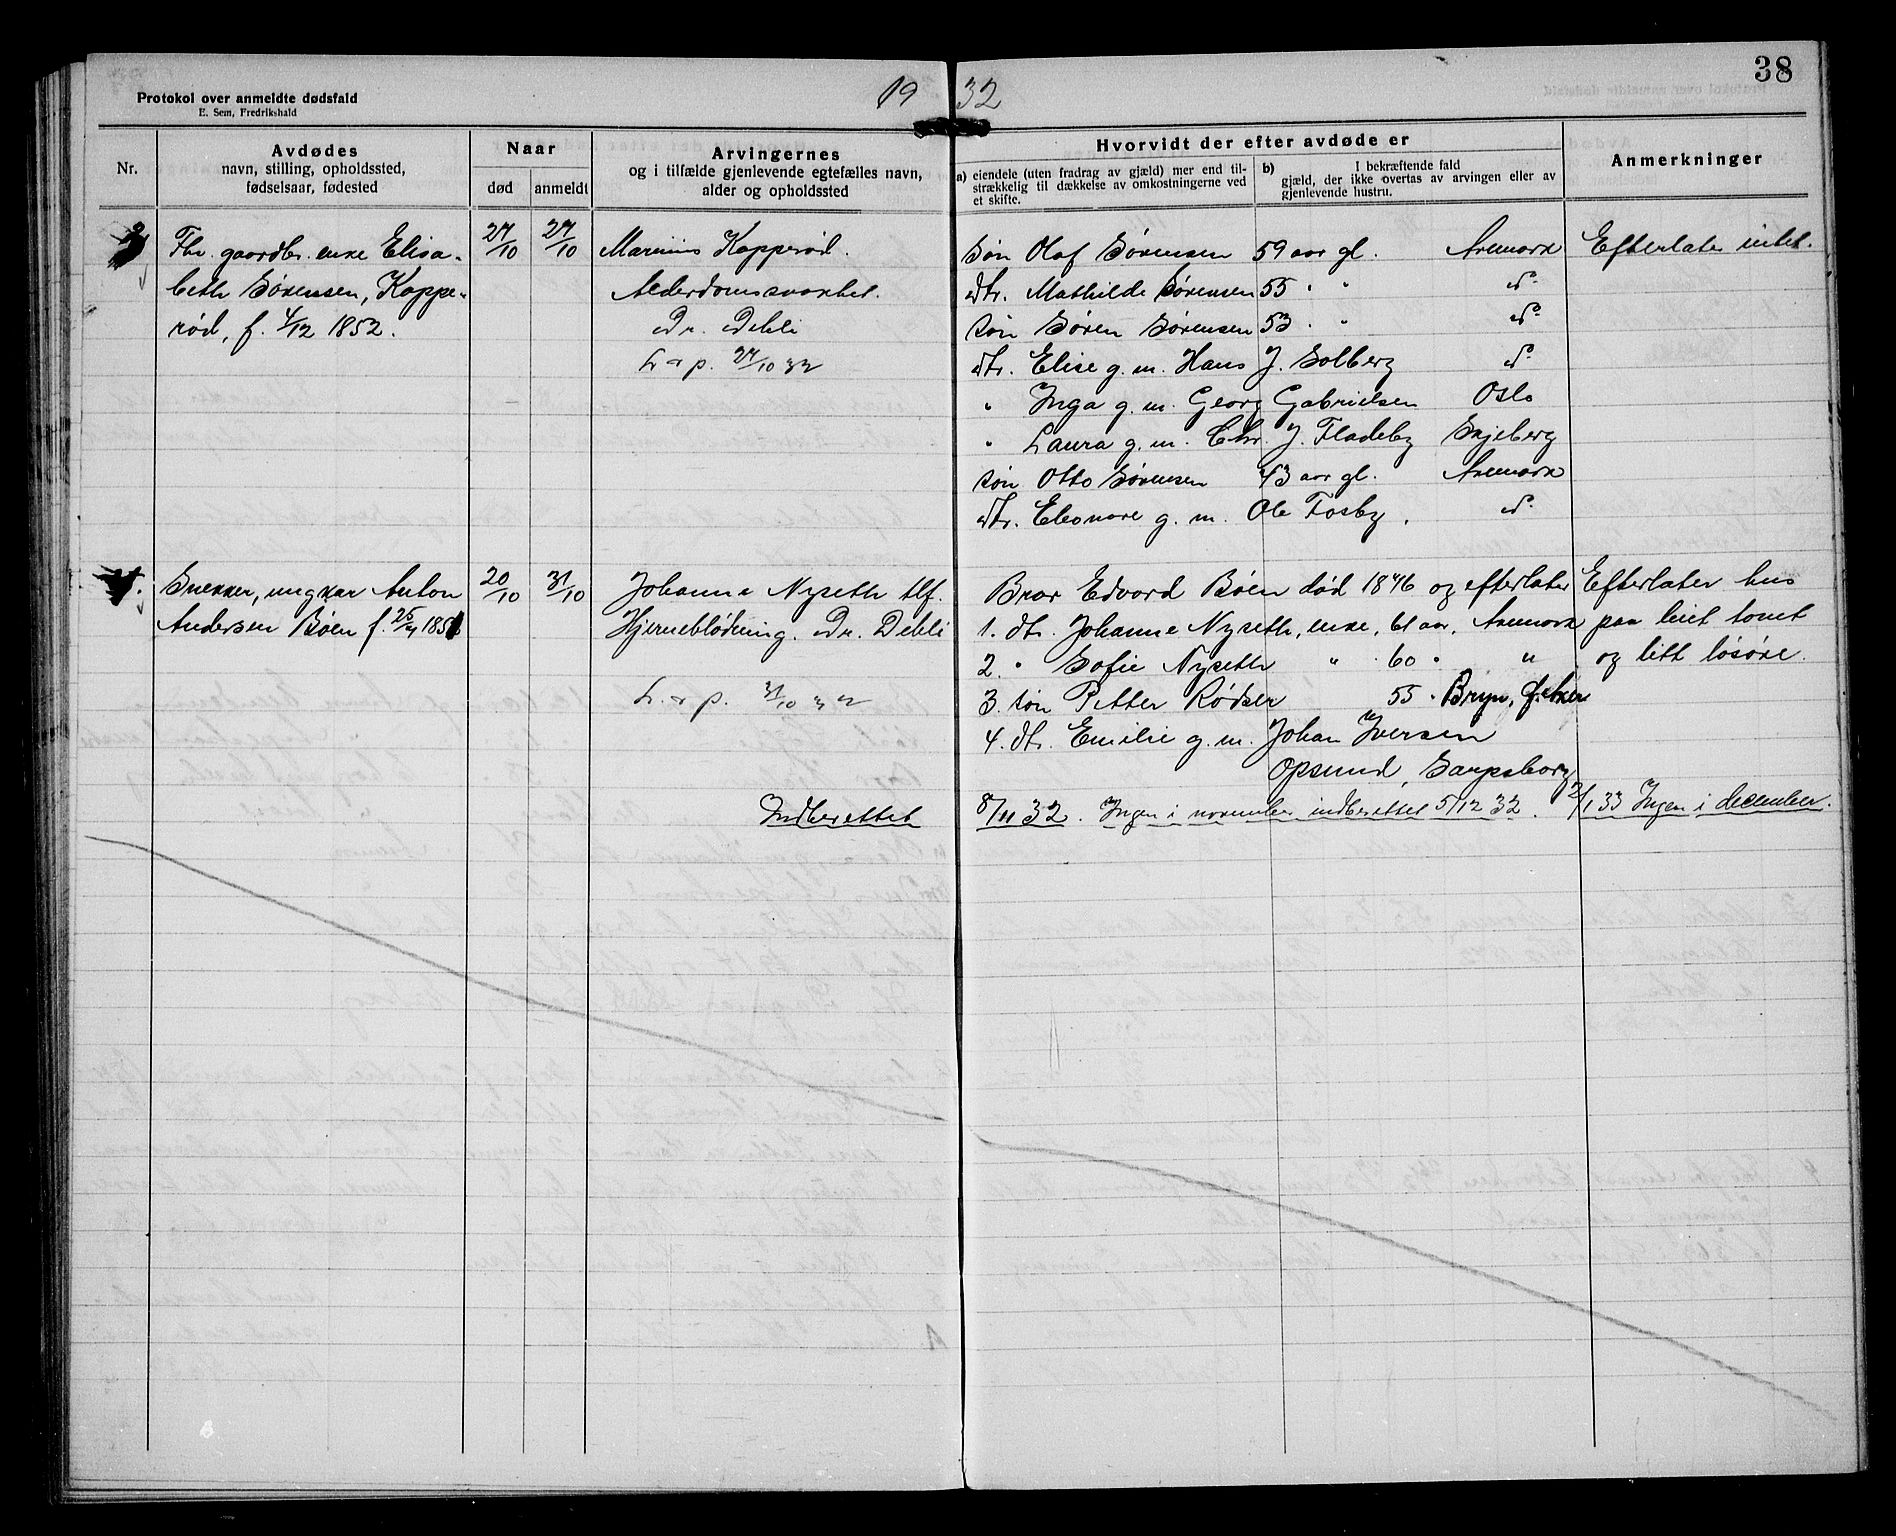 38
Protokol over anmeldte dødsfald
E. Sem, Fredrikshald
19 32
Nr.
Avdødes
navn, stilling, opholdssted,
fødselsaar, fødested
Naar
død
anmeldt
Arvingernes
og i tilfælde gjenlevende egtefælles navn,
alder og opholdssted
Hvorvidt der efter avdøde er
a) eiendele (uten fradrag av gjæld) mer end til-
strækkelig til dækkelse av omkostningerne ved
et skifte.
b) I bekræftende fald
gjæld, der ikke overtas av arvingen eller av
gjenlevende hustru.
Anmerkninger
Fhr. gaardbr. enke Elisa-
beth Sørensen, Koppe-
rød, f. 4/12 1852.
27/10
27/10
Marinius Kopperød.
Alderdomssvakhet.
Dr. Dehli
L & p. 27/10 32
søn Olaf Sørensen 59 aar gl. Aremark
dtr. Mathilde Sørensen 55 " " do
søn Søren Sørensen 53 " " do
dtr. Elise g. m. Hans J. Solberg do
" Inga g. m. Georg Gabrielsen Oslo
" Laura g. m. Chr. J. Fladeby Skjeberg
søn Otto Sørensen 43 aar gl. Aremark
dtr. Eleonore g. m. Ole Fosby, do
Efterlater intet.
4.
Snekker, ungkar Anton
Andersen Bøen f. 25/4 185
20/10
31/10
Johanne Nyseth tlf.
Hjerneblødning. Dr. Dehli
L. & p. 31/10 32
Bror Edvard Bøen død 1876 og efterlater
1. dtr. Johanne Nyseth, enke, 61 aar, Aremark
2. " Sofie Nyseth " 60 " "
3. søn Petter Rødser 55 " Bryn,
4. dtr. Emilie g. m. Johan Iversen
Opsund, Sarpsborg
Efterlater hus
paa leiet tomt
og litt løsøre.
Indberettet 8/11 32. Ingen i november indberettet 5/12 32. 2/1 33 Ingen i december.